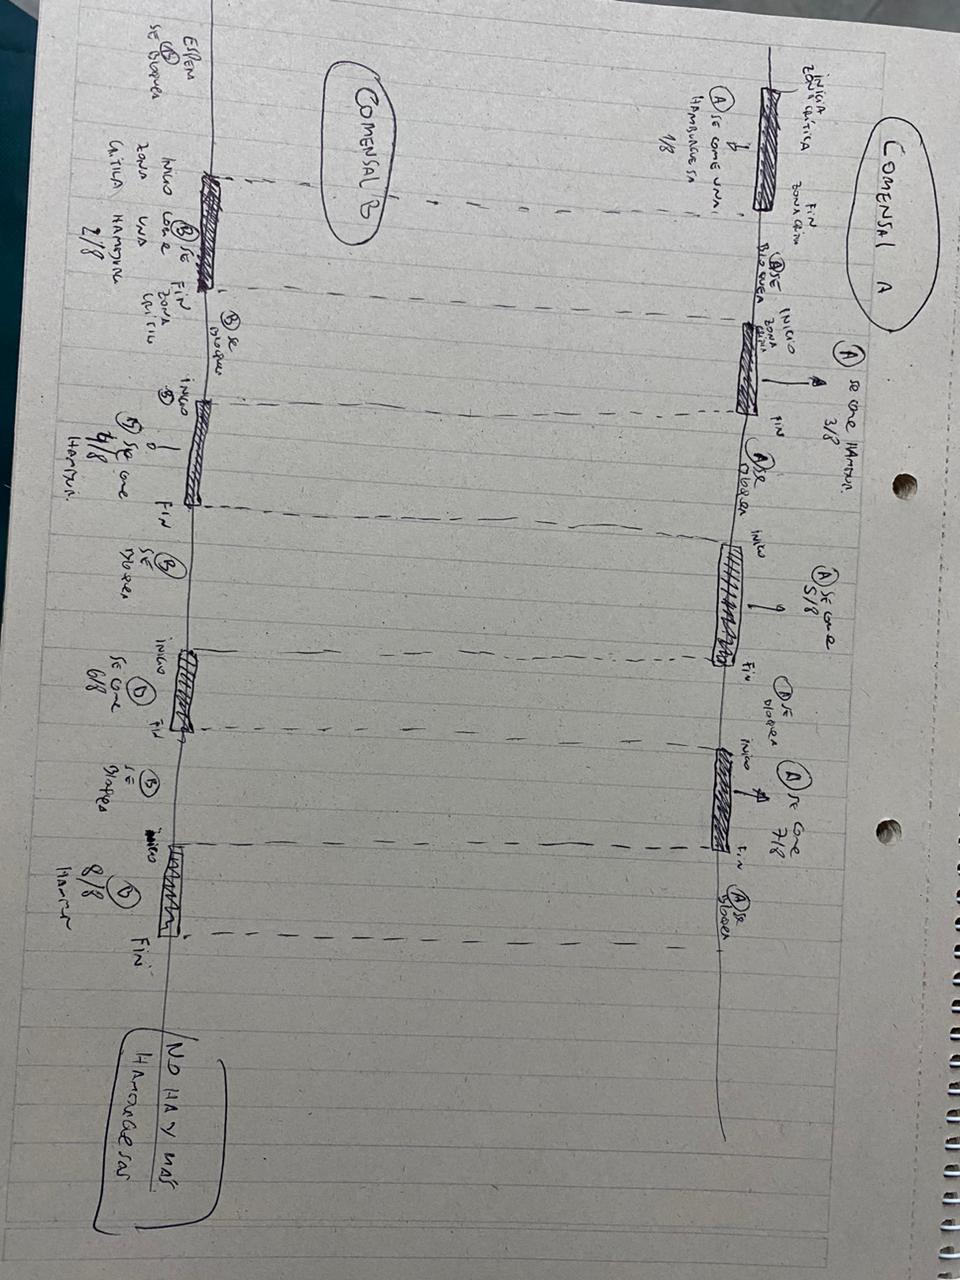 COMENSAL A
INICIA
ZONA CRITICA
FIN
ZONA CRITI
(A) SE COME UNA
HAMBURGUESA
1/8
(A) SE
BLOQUEA
INICIO
ZONA
CRITICA
(A) SE COME HAMBUR.
3/8
FIN
(A) SE
BLOQUEA
INICIO
(A) SE COME
5/8
FIN
(A) SE
BLOQUEA
INICIO
(A) SE COME
7/8
FIN
(A) SE
BLOQUEA
COMENSAL B
ESPERA
(B)
SE BLOQUEA
INICIO
ZONA
CRITICA
(B) SE
COME
UNA
HAMBUR
2/8
FIN
ZONA
CRITIC
(B) SE
BLOQUEA
INICIO
(B)
(B) SE COME
4/8
HAMBUR.
FIN
(B)
SE
BLOQUEA
INICIO
(B)
SE COME
6/8
FIN
(B)
SE
BLOQUEA
INICIO
(B)
8/8
HAMBUR
FIN
NO HAY MAS
HAMBURGUESAS